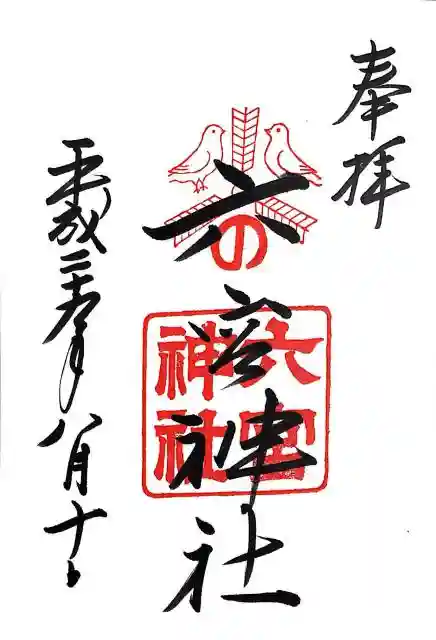 奉拝
六宮神社
の
六宮
神社
平成二十六年八月十日